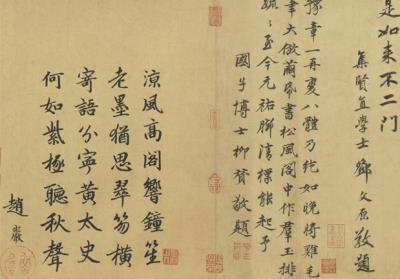 是如来不二門
集賢直學士鄧文原敬題
豫章一再變八體乃純如晚將雞毛
筆大倣蘭亭書松風閣中作羣玉排
疏至今元祐脚清標能起予
國子博士柳贯敬題
涼風高閣響鐘笙
老墨猶思翠笏橫
寄語分寧黃太史
何如紫極聽秋聲
趙巖